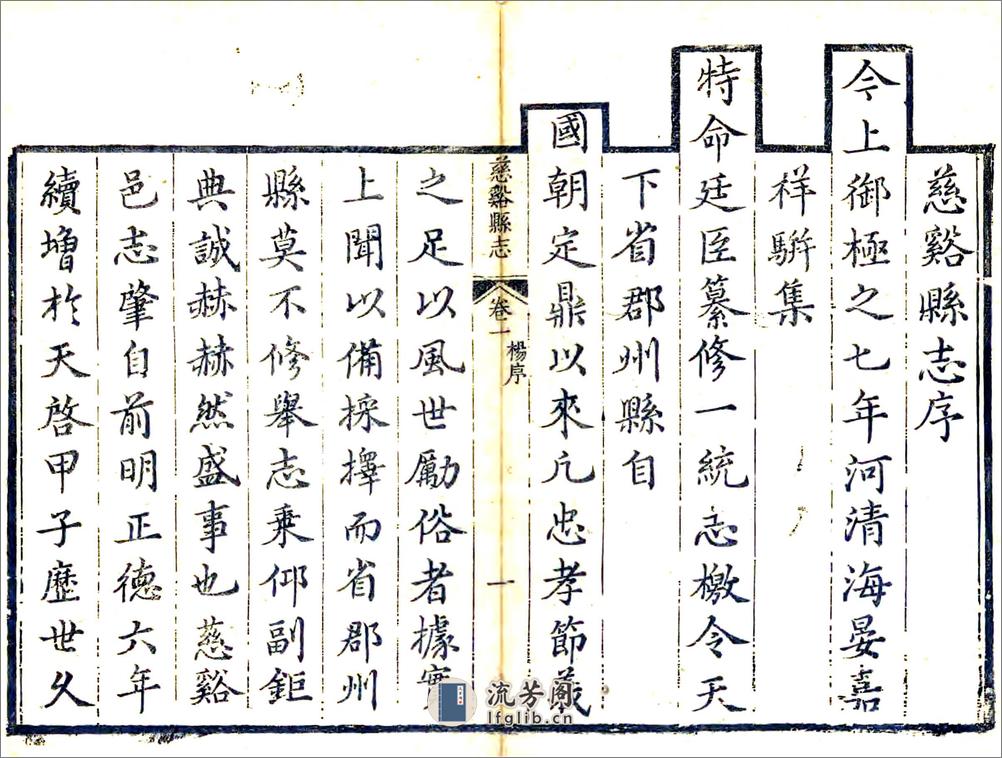 慈谿縣志序
今上御極之七年河清海晏嘉
祥駢集
特命廷臣纂修一統志檄令天
下省郡州縣自
國朝定鼎以來凢忠孝節義
慈谿縣志
卷一
楊序
一
之足以風世勵俗者據實
上聞以備採擇而省郡州
縣莫不修舉志乗仰副鉅
典誠赫赫然盛事也慈谿
邑志肇自前明正德六年
續增於天啓甲子歷世久
流芳阁
lfglib.cn